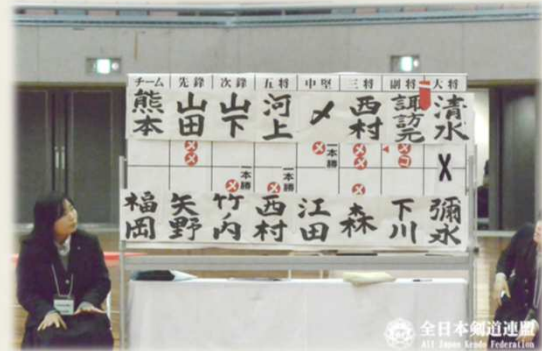 チーム 先鋒 次鋒 五将 中堅 三将 副将 大将
熊本 山田 山下 河上 〆 西村 諏訪元 清水
メ メ メ 一本勝 メ メ コ
メ 一本勝 メ 一本勝 メ X
福岡 矢野 竹内 西村 江田 森 下川 彌永
全日本剣道連盟
All Japan Kendo Federation